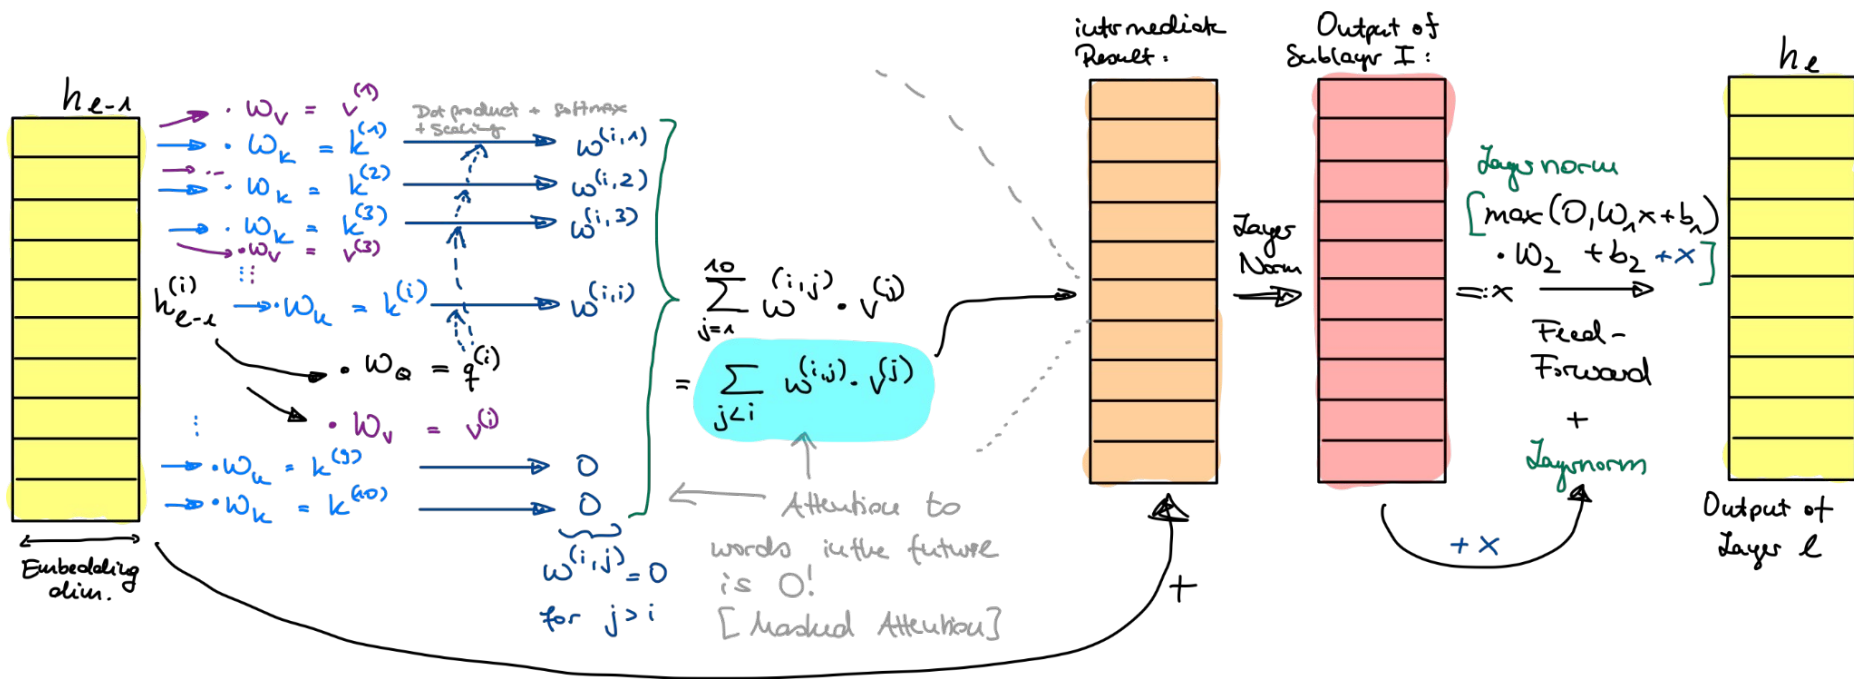 h_{e-1}
· W_v = v^(1)
· W_k = k^(1)
...
· W_k = k^(2)
· W_k = k^(3)
· W_v = v^(3)
h_{e-1}^(i)
· W_k = k^(i)
· W_Q = q^(i)
· W_v = v^(i)
· W_k = k^(9)
· W_k = k^(10)
Embedding
dim.
Dot product + softmax
+ Scaling
w^(i,1)
w^(i,2)
w^(i,3)
w^(i,i)
0
0
w^(i,j) = 0
for j > i
∑_{j=1}^{10} w^(i,j) · v^(j)
= ∑_{j<i} w^(i,j) · v^(j)
Attention to
words in the future
is 0!
[Masked Attention]
intermediate
Result:
+
Layer
Norm
Output of
Sublayer I:
=: x
Layernorm
[max(0, W_1 x + b_1)
· W_2 + b_2 + x]
Feed-
Forward
+
Layernorm
+ x
h_e
Output of
Layer l